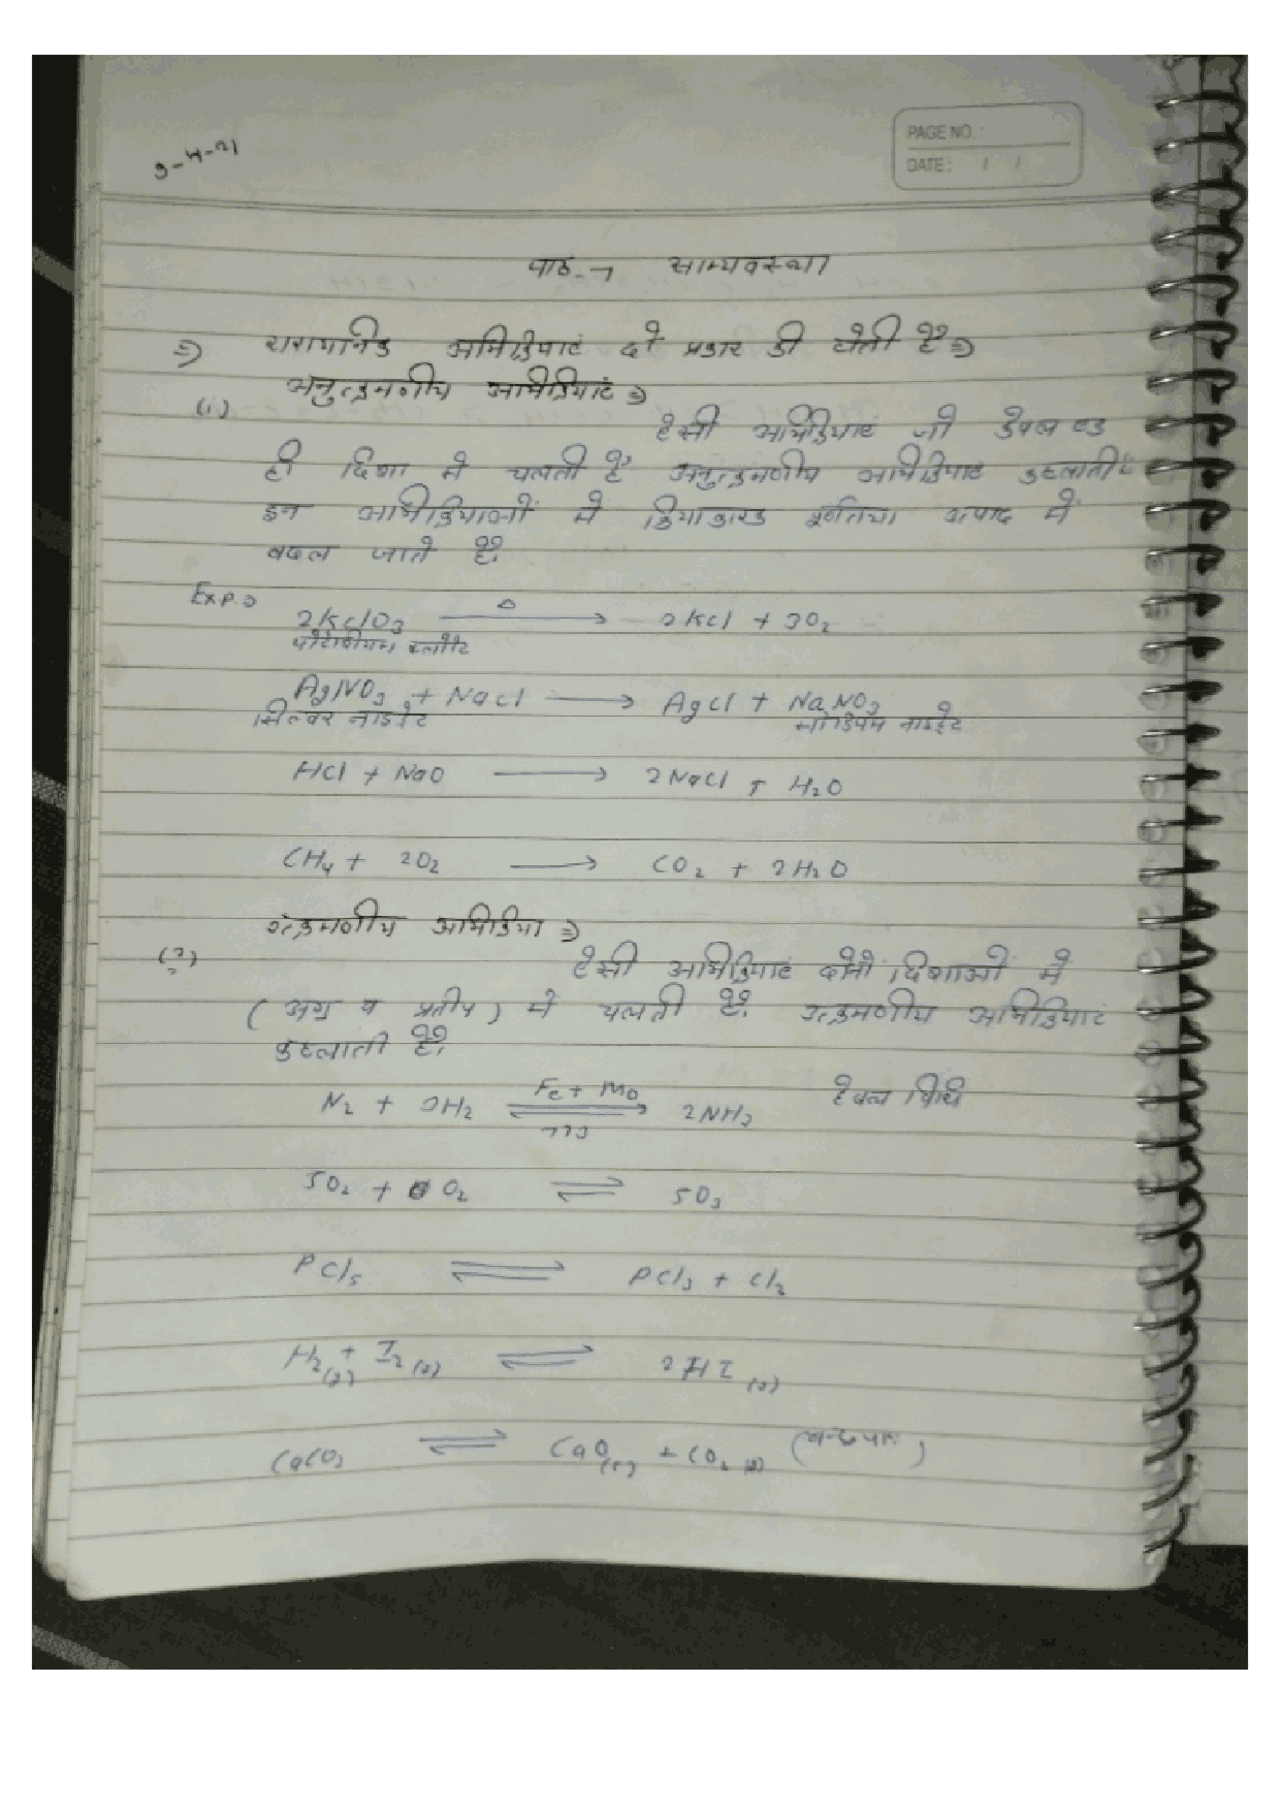 PAGE NO. :
DATE: / /
9-4-21
पाठ-7 साम्यवस्था
⇒ रासायनिक अभिक्रियाएं दो प्रकार की होती हैं⇒
(i) अनुत्क्रमणीय अभिक्रियाएं ⇒
ऐसी अभिक्रियाएं जो केवल एक
ही दिशा में चलती हैं अनुत्क्रमणीय अभिक्रियाएं कहलाती हैं
इन अभिक्रियाओं में क्रियाकारक पूर्णतया उत्पाद में
बदल जाते हैं।
Exp.⇒
2KClO3 —Δ→ 2KCl + 3O2
पोटेशियम क्लोरेट
AgNO3 + NaCl → AgCl + NaNO3
सिल्वर नाइट्रेट सोडियम नाइट्रेट
HCl + NaO → 2NaCl + H2O
CH4 + 2O2 → CO2 + 2H2O
(2) उत्क्रमणीय अभिक्रिया ⇒
ऐसी अभिक्रियाएं दोनों दिशाओं में
(अग्र व प्रतीप) में चलती हैं। उत्क्रमणीय अभिक्रियाएं
कहलाती हैं।
Fe + Mo
N2 + 3H2 ⇌ 2NH3 हैबर विधि
773
SO2 + O2 ⇌ SO3
PCl5 ⇌ PCl3 + Cl2
H2(g) + I2(g) ⇌ 2HI(g)
CaCO3 ⇌ CaO(s) + CO2(g)